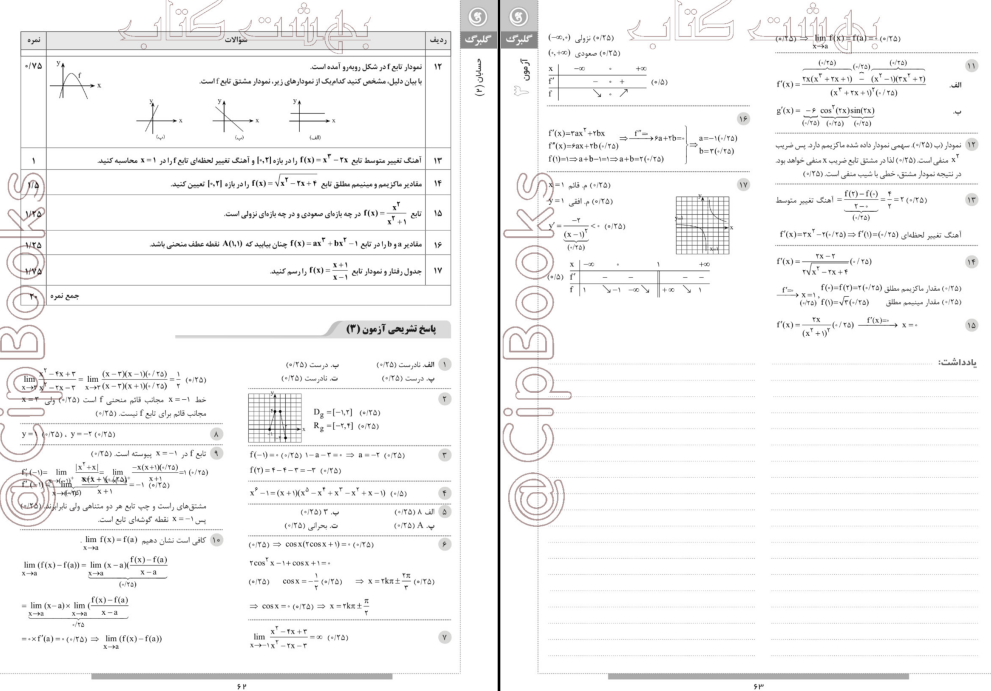 بهشت کتاب
@CipBooks
گلبرگ
حسابان (۲)
ردیف سؤالات نمره
۱۲ نمودار تابع f در شکل روبه‌رو آمده است. ۰/۷۵
با بیان دلیل، مشخص کنید کدام‌یک از نمودارهای زیر، نمودار مشتق تابع f است.
(الف) (ب) (پ)
۱۳ آهنگ تغییر متوسط تابع f(x) = x³ − ۲x را در بازه [۰,۲] و آهنگ تغییر لحظه‌ای تابع f را در x = ۱ محاسبه کنید. ۱
۱۴ مقادیر ماکزیمم و مینیمم مطلق تابع f(x) = √(x² − ۲x + ۴) را در بازه [۰,۲] تعیین کنید. ۱/۵
۱۵ تابع f(x) = x²/(x² + ۱) در چه بازه‌ای صعودی و در چه بازه‌ای نزولی است. ۱/۲۵
۱۶ مقادیر a و b را در تابع f(x) = ax³ + bx² − ۱ چنان بیابید که A(۱,۱) نقطه عطف منحنی باشد. ۱/۲۵
۱۷ جدول رفتار و نمودار تابع f(x) = (x+۱)/(x−۱) را رسم کنید. ۱/۷۵
جمع نمره ۲۰
پاسخ تشریحی آزمون (۳)
۱ الف. نادرست (۰/۲۵) ب. درست (۰/۲۵)
پ. درست (۰/۲۵) ت. نادرست (۰/۲۵)
۲ D_g = [−۱,۲] (۰/۲۵)
R_g = [−۲,۴] (۰/۲۵)
۳ f(−۱) = ۰ (۰/۲۵) ۱ − a − ۳ = ۰ ⇒ a = −۲ (۰/۲۵)
f(۲) = ۴ − ۴ − ۳ = −۳ (۰/۲۵)
۴ x⁶ − ۱ = (x+۱)(x⁵ − x⁴ + x³ − x² + x − ۱) (۰/۵)
۵ الف. ۸ (۰/۲۵) ب. ۳ (۰/۲۵)
پ. A (۰/۲۵) ت. بحرانی (۰/۲۵)
۶ (۰/۲۵) ⇒ cosx(۲cosx + ۱) = ۰ (۰/۲۵)
۲cos²x − ۱ + cosx + ۱ = ۰
(۰/۲۵) cosx = −۱/۲ (۰/۲۵) ⇒ x = ۲kπ ± ۲π/۳ (۰/۲۵)
⇒ cosx = ۰ (۰/۲۵) ⇒ x = ۲kπ ± π/۲
۷ lim x→−۱ (x² − ۴x + ۳)/(x² − ۲x − ۳) = ∞ (۰/۲۵)
lim x→۳ (x² − ۴x + ۳)/(x² − ۲x − ۳) = lim x→۳ (x−۳)(x−۱)(۰/۲۵)/(x−۳)(x+۱)(۰/۲۵) = ۱/۲ (۰/۲۵)
خط x = −۱ مجانب قائم منحنی f است (۰/۲۵) ولی x = ۳
مجانب قائم برای تابع f نیست. (۰/۲۵)
۸ y = ۱ (۰/۲۵) , y = −۲ (۰/۲۵)
۹ تابع f در x = −۱ پیوسته است. (۰/۲۵)
مشتق‌های راست و چپ تابع هر دو متناهی ولی نابرابرند (۰/۲۵)
پس x = −۱ نقطه گوشه‌ای تابع است.
۱۰ کافی است نشان دهیم lim x→a f(x) = f(a) .
lim x→a (f(x) − f(a)) = lim x→a (x−a)(f(x) − f(a))/(x − a) (۰/۲۵)
= lim x→a (x−a) × lim x→a (f(x) − f(a))/(x − a) ۰/۲۵
= ۰ × f′(a) = ۰ (۰/۲۵) ⇒ lim x→a (f(x) − f(a))
۶۲
گلبرگ
آزمون ۳
(۰/۲۵) ⇒ lim x→a f(x) = f(a) = ۰ (۰/۲۵)
۱۱ الف. f′(x) = (۲x(x³ + ۲x + ۱) − (x² − ۱)(۳x² + ۲))/(x³ + ۲x + ۱)² (۰/۲۵)
(۰/۲۵) (۰/۲۵) (۰/۲۵)
ب. g′(x) = −۶ cos²(۲x) sin(۲x)
(۰/۲۵) (۰/۲۵) (۰/۲۵)
۱۲ نمودار (ب (۰/۲۵). سهمی نمودار داده شده ماکزیمم دارد. پس ضریب
x² منفی است. (۰/۲۵) لذا در مشتق تابع ضریب x منفی خواهد بود.
در نتیجه نمودار مشتق، خطی با شیب منفی است. (۰/۲۵)
۱۳ آهنگ تغییر متوسط = (f(۲) − f(۰))/(۲ − ۰) = ۴/۲ = ۲ (۰/۲۵)
(۰/۲۵)
آهنگ تغییر لحظه‌ای f′(x) = ۳x² − ۲ (۰/۲۵) ⇒ f′(۱) = ۱ (۰/۲۵)
۱۴ f′(x) = (۲x − ۲)/(۲√(x² − ۲x + ۴)) (۰/۲۵)
f′=۰ → x = ۱ (۰/۲۵), f(۰) = f(۲) = ۲ (۰/۲۵) مقدار ماکزیمم مطلق (۰/۲۵)
f(۱) = √۳ (۰/۲۵) مقدار مینیمم مطلق (۰/۲۵)
۱۵ f′(x) = ۲x/(x² + ۱)² (۰/۲۵) f′(x)=۰ → x = ۰
(−∞,۰) نزولی (۰/۲۵)
(۰,+∞) صعودی (۰/۲۵)
x −∞ ۰ +∞
f′ − ۰ + (۰/۵)
f ↘ ۰ ↗
۱۶ f′(x) = ۳ax² + ۲bx
f″(x) = ۶ax + ۲b (۰/۲۵) f″=۰ → ۶a + ۲b = ۰
f(۱) = ۱ ⇒ a + b − ۱ = ۱ ⇒ a + b = ۲ (۰/۲۵)
⇒ a = −۱ (۰/۲۵)
b = ۳ (۰/۲۵)
۱۷ x = ۱ م. قائم (۰/۲۵)
y = ۱ م. افقی (۰/۲۵)
y′ = −۲/(x − ۱)² < ۰ (۰/۲۵)
(۰/۲۵)
x −∞ ۰ ۱ +∞
f′ − − − − (۰/۵)
f ۱ ↘ −۱ −∞ ↘ +∞ ↘ ۱
یادداشت:
۶۳